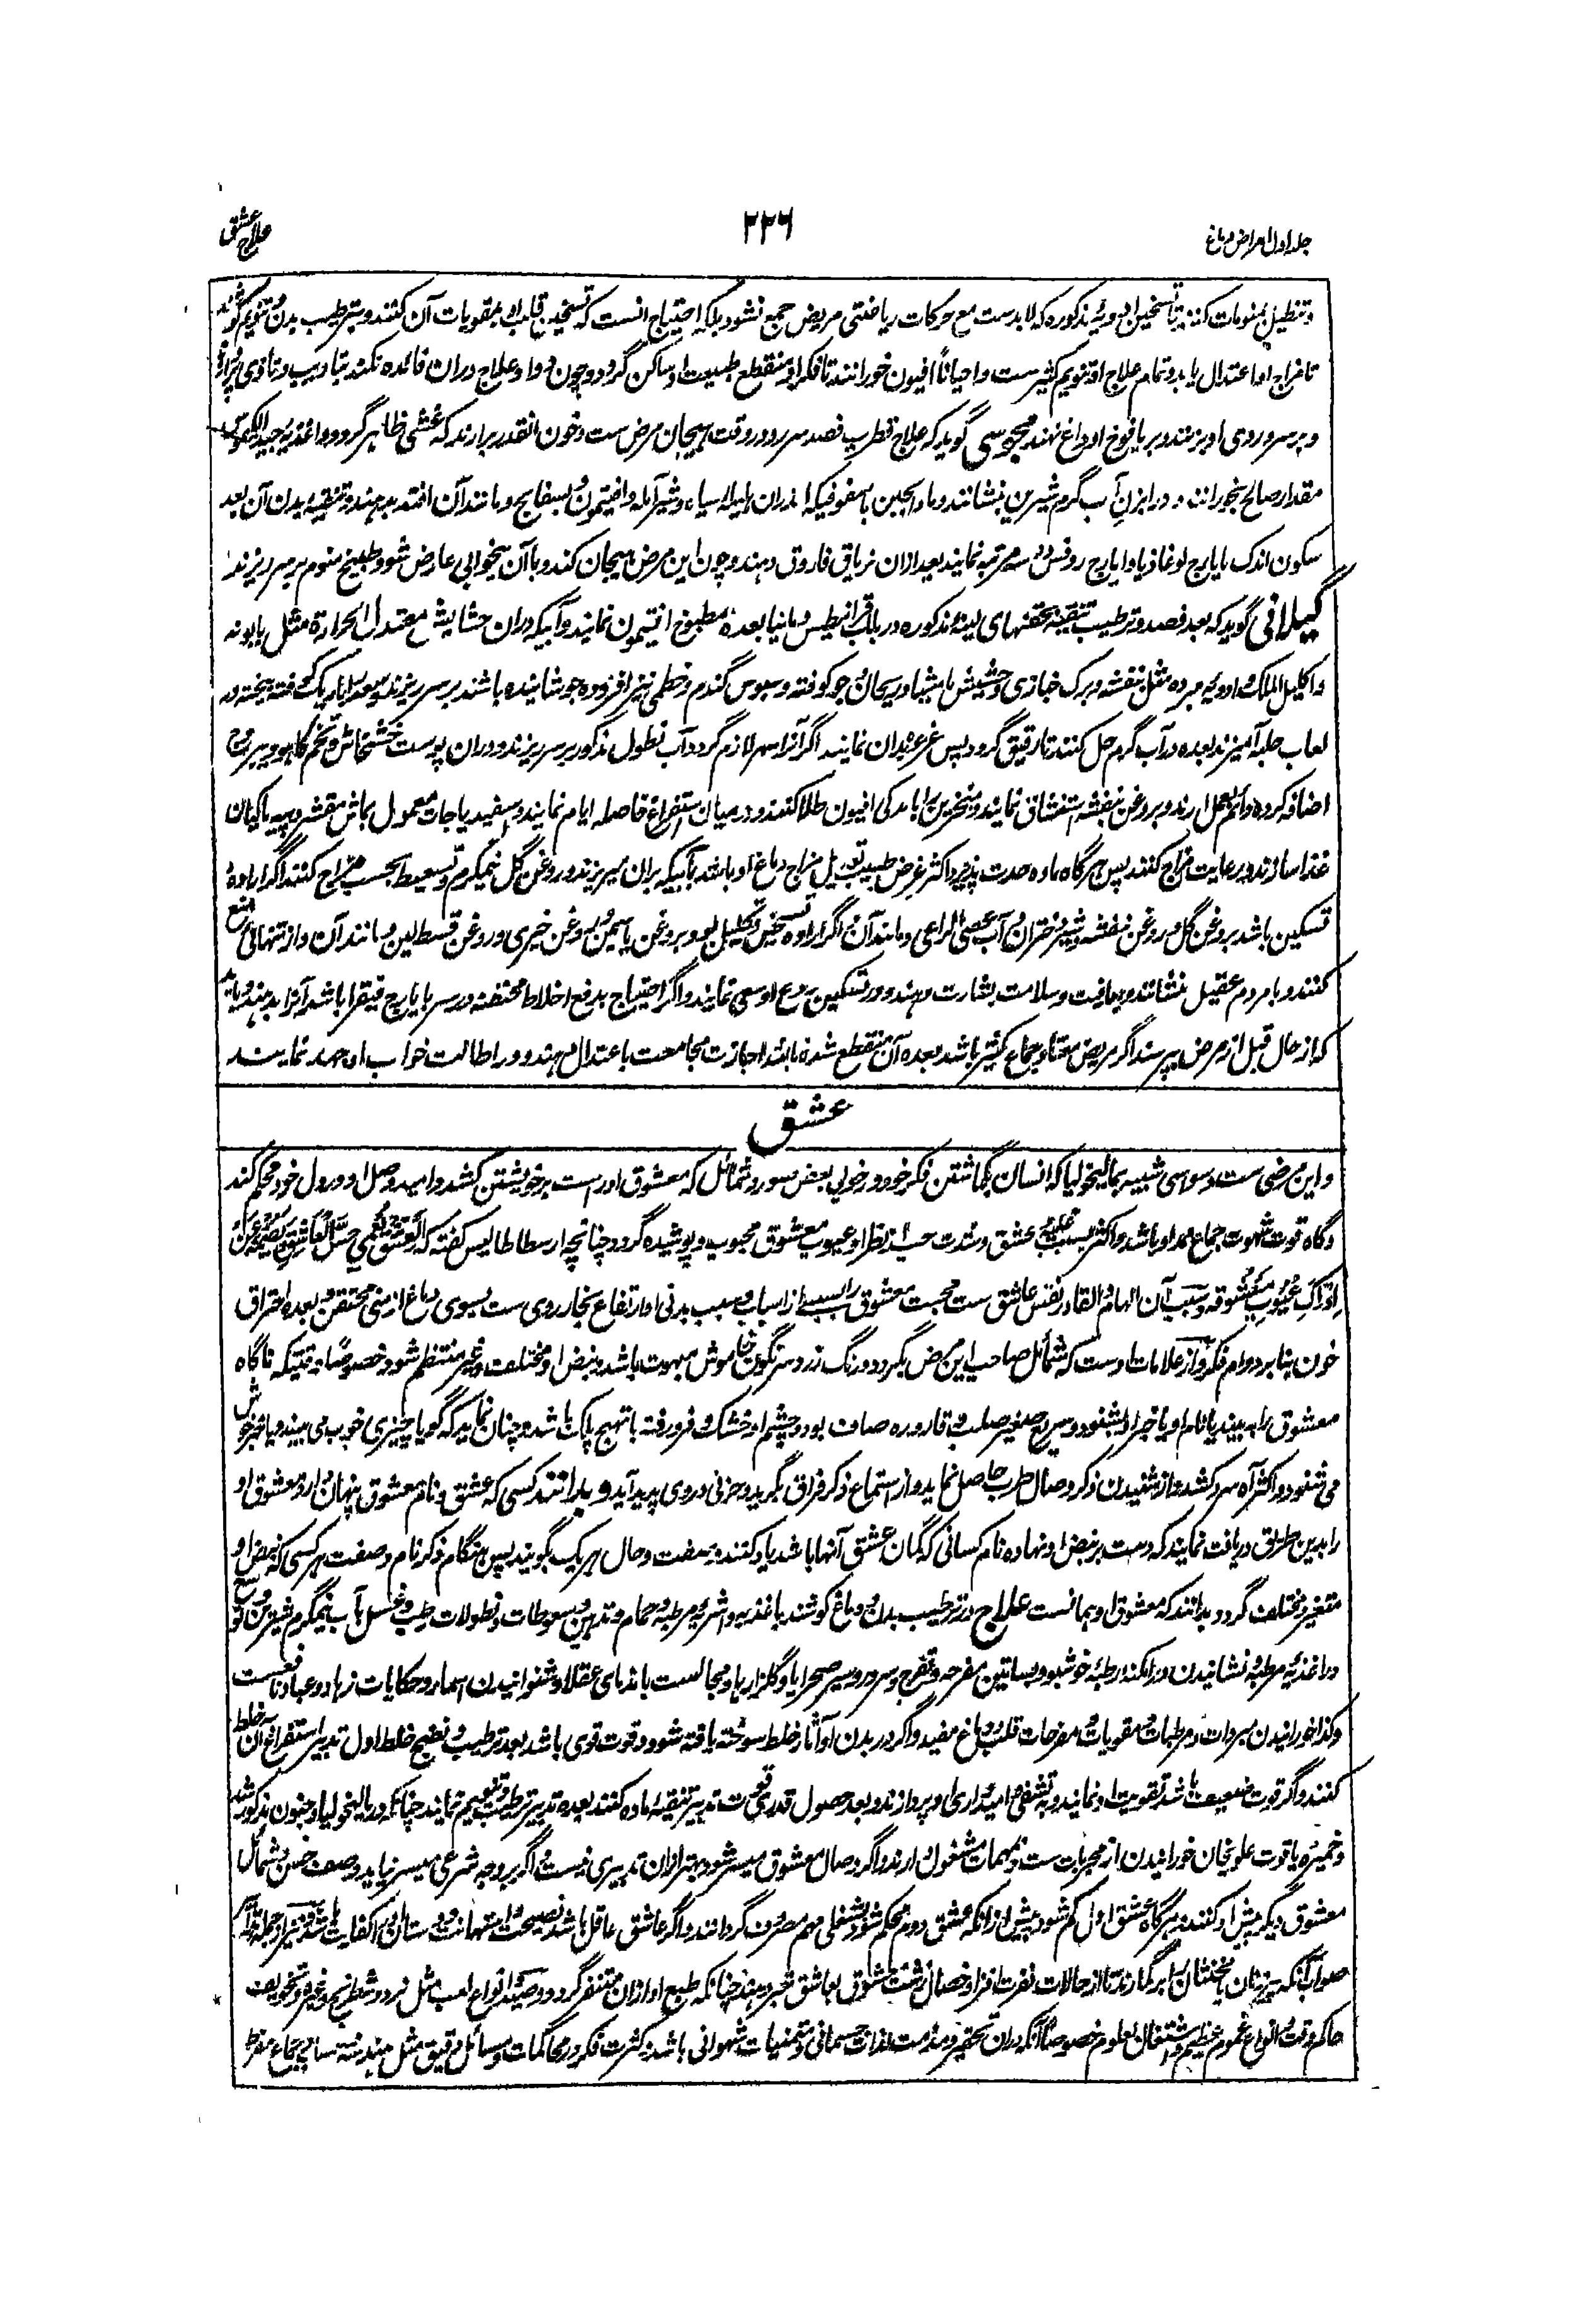 جلد اول امراض دماغ
۲۲۶
علاج عشق
و تنطیل بمنومات کنند تا تسخین ادویه مذکوره که لابدست مع حرکات ریاضتی مریض جمع نشود بلکه احتیاج انست که تسخین قلب او بمقویات آن کنند و بترطیب بدن و تنویم کوشند
تا مزاج او اعتدال یابد و تمام علاج او تنویم کثیرست و احیاناً افیون خورانند تا فکر او منقطع طبیعت او ساکن گردد و چون دوا و علاج دران فائده نکند بتادیب و تاذی پردازند
و بر سر و روی او بزنند و بر یافوخ او داغ نهند مجوسی گوید که علاج قطرب فصد سر رو در وقت هیجان مرض ست و خون انقدر برارند که غشی ظاهر گردد و اغذیه جید الکیموس
مقدار صالح بخورانند و در ابزن آب گرم شیرین بنشانند و ماء الجبین با سفوفیکه اندران هلیله سیاه و شیر آمله و افتیمون و بسفایج و مانند آن افتد بدهند و تنقیه بدن آن بعد
سکون اندک بایارج لوغاذیا و ایارج روفس دو سه مرتبه نمایند بعد ازان تریاق فاروق دهند و چون این مرض هیجان کند و با آن بیخوابی عارض شود طبیخ منوم بر سر ریزند
گیلانی گوید که بعد فصد و ترطیب تنقیه بحقنهای لینه مذکوره در باب قرانیطس و مانیا بعده مطبوخ افتیمون نمایند و آبیکه دران حشایش معتدل الحرارة مثل بابونه
و اکلیل الملک و ادویه مبرده مثل بنفشه و برگ خبازی و حشیش بامیشا و ریحان و جو کوفته و سبوس گندم و خطمی نیز افزوده جوشانیده باشند بر سر ریزند
لعاب حلبه آمیزند بعده در آب گرم حل کنند تا رقیق گردد پس غرغره بدان نمایند اگر آنرا سهر لازم گردد آب نطول مذکور بر سر ریزند و دران پوست خشخاش و تخم کاهو و یبروج
اضافه کرده دائم بعمل ارند و بروغن بنفشه استنشاق نمایند و منخرین را باندکی افیون طلا کنند و درمیان استفراغ فاصله ایام نمایند و اسفیدباجات معمول بماش مقشر و پیه ماکیان
غذا سازند و رعایت مزاج کنند پس هرگاه ماده حدت پذیرد اکثر غرض طبیب تعدیل مزاج دماغ او باشد بآبیکه بران میریزند و روغن گل نیمگرم و تسعیط بحسب مزاج کنند اگر اراده
تسکین باشد بروغن گل و روغن بنفشه و شیر دختران و آب عصی الراعی و مانند آن و اگر اراده تسخین و تحلیل بود بروغن یاسمین و روغن خیری و روغن قسط لین و مانند آن و از تنهائی منع
کنند و با مردم عقیل بنشانند و بعافیت و سلامت بشارت دهند و در تسکین روع او سعی نمایند و اگر احتیاج بدفع اخلاط محتقنه در سر بایارج فیقرا باشد آنرا بدهند و باید
که از حال قبل از مرض بپرسند اگر مریض معتاد جماع کثیر باشد بعده آن منقطع شده باشد اجازت مجامعت باعتدال دهند و در اطالت خواب او جهد نمایند
عشق
و این مرضی ست وسواسی شبیه بمالیخولیا که انسان بگماشتن فکر خود در خوبی بعض صور و شمائل که معشوق اوراست بر خویشتن کشد و امید وصل او در دل خود محکم کند
و گاه قوت شهوت جماع ممد او باشد و اکثر بسبب غلبه عشق و شدت حب از نظر او عیوب معشوق محجوب و پوشیده گردد چنانچه ارسطاطالیس گفته که العشق عمی حس العاشق عن
ادراک عیوب معشوقه و سبب آن الهام و القا در نفس عاشق ست محبت معشوق را بسببی از اسباب و سبب بدنی او ارتفاع بخار ردی ست بسوی دماغ از منی محتقن و بعده احتراق
خون بنا بر دوام فکر و از علامات اوست که شمائل صاحب این مرض بگردد و رنگ زرد و سرنگون خاموش مبهوت باشد و نبض او مختلف و غیر منتظم شود خصوصاً وقتیکه ناگاه
معشوق را به بیند یا نام او یا خبر او بشنود و سریع صغیر صلب و قاروره صاف بود و چشم او خشک و فرورفته با تهیج پلک باشد و چنان نماید که گویا چیزی خوب می بیند و یا خبر خوش
می شنود و اکثر آه سرد کشد و از شنیدن ذکر وصال طرب حاصل نماید و از استماع ذکر فراق بگرید و حزنی در وی پدید آید و بدانند کسی که عشق و نام معشوق پنهان دارد معشوق او
را بدین طریق دریافت نمایند که دست بر نبض او نهاده نام کسانی که گمان عشق آنها باشد یاد کنند و صفت و حال هر یک بگویند پس هنگام ذکر نام و صفت هر کسی که نبض او
متغیر و مختلف گردد بدانند که معشوق او همانست علاج در ترطیب بدن و دماغ کوشند باغذیه و اشربه مرطبه و حمام و تدهین و سعوطات و نطولات رطب و غسل بآب نیمگرم شیرین
در اغذیه مرطبه و نشانیدن در امکنه رطبه خوشبو و بساتین مفرحه و تفرج و سرور و سیر صحرا یا و گلزارها و مجالست با ندمای عقلا و شنوانیدن اسمار و حکایات زهاد و عباد نافعست
و کذا خورانیدن مبردات و مرطبات و مقویات و مفرحات قلب و دماغ مفید و اگر در بدن او آثار خلط سوخته یافته شود و قوت قوی باشد بعد ترطیب و نضج خلط اول تدبیر استفراغ آن خلط
کنند و اگر قوت ضعیف باشد تقویت او نمایند و به تشفی و امیدداری او پردازند و بعد حصول قدری قوت تدبیر تنقیه ماده کنند بعده تدبیر ترطیب و تنویم نمایند چنانکه در مالیخولیا و جنون مذکور شد
و خمیره یاقوت علویخان خورانیدن از مجربات ست و بمهمات مشغول دارند و اگر وصال معشوق میسر شود بهتر ازان تدبیری نیست و اگر بر وجه شرعی میسر نیاید وصف حسن و شمائل
معشوق دیگر پیش او کنند و هرگاه عشق اول کم شود پیش ازانکه عشق دوم محکم شود بشغلی مهم مصروف گردانند و اگر عاشق عاقل باشد نصیحت و استهانت دوستان او را کفایت باشد
صواب آنکه پیرزنان یا مخنثان را برگمارند تا از حالات نفرت افزا و خصال زشت معشوق بعاشق خبر دهند چنانکه طبع او ازان متنفر گردد و صید و انواع لعب مثل نرد و شطرنج و غیره و تخویف
حاکم وقت و انواع غموم عظیم و اشتغال بعلوم خصوصاً آنکه دران تحقیر و مذمت لذات جسمانی و متمنیات شهوانی باشد و کثرت فکر در محاکمات و مسائل دقیق مثل هندسه و حساب و جماع مفرط